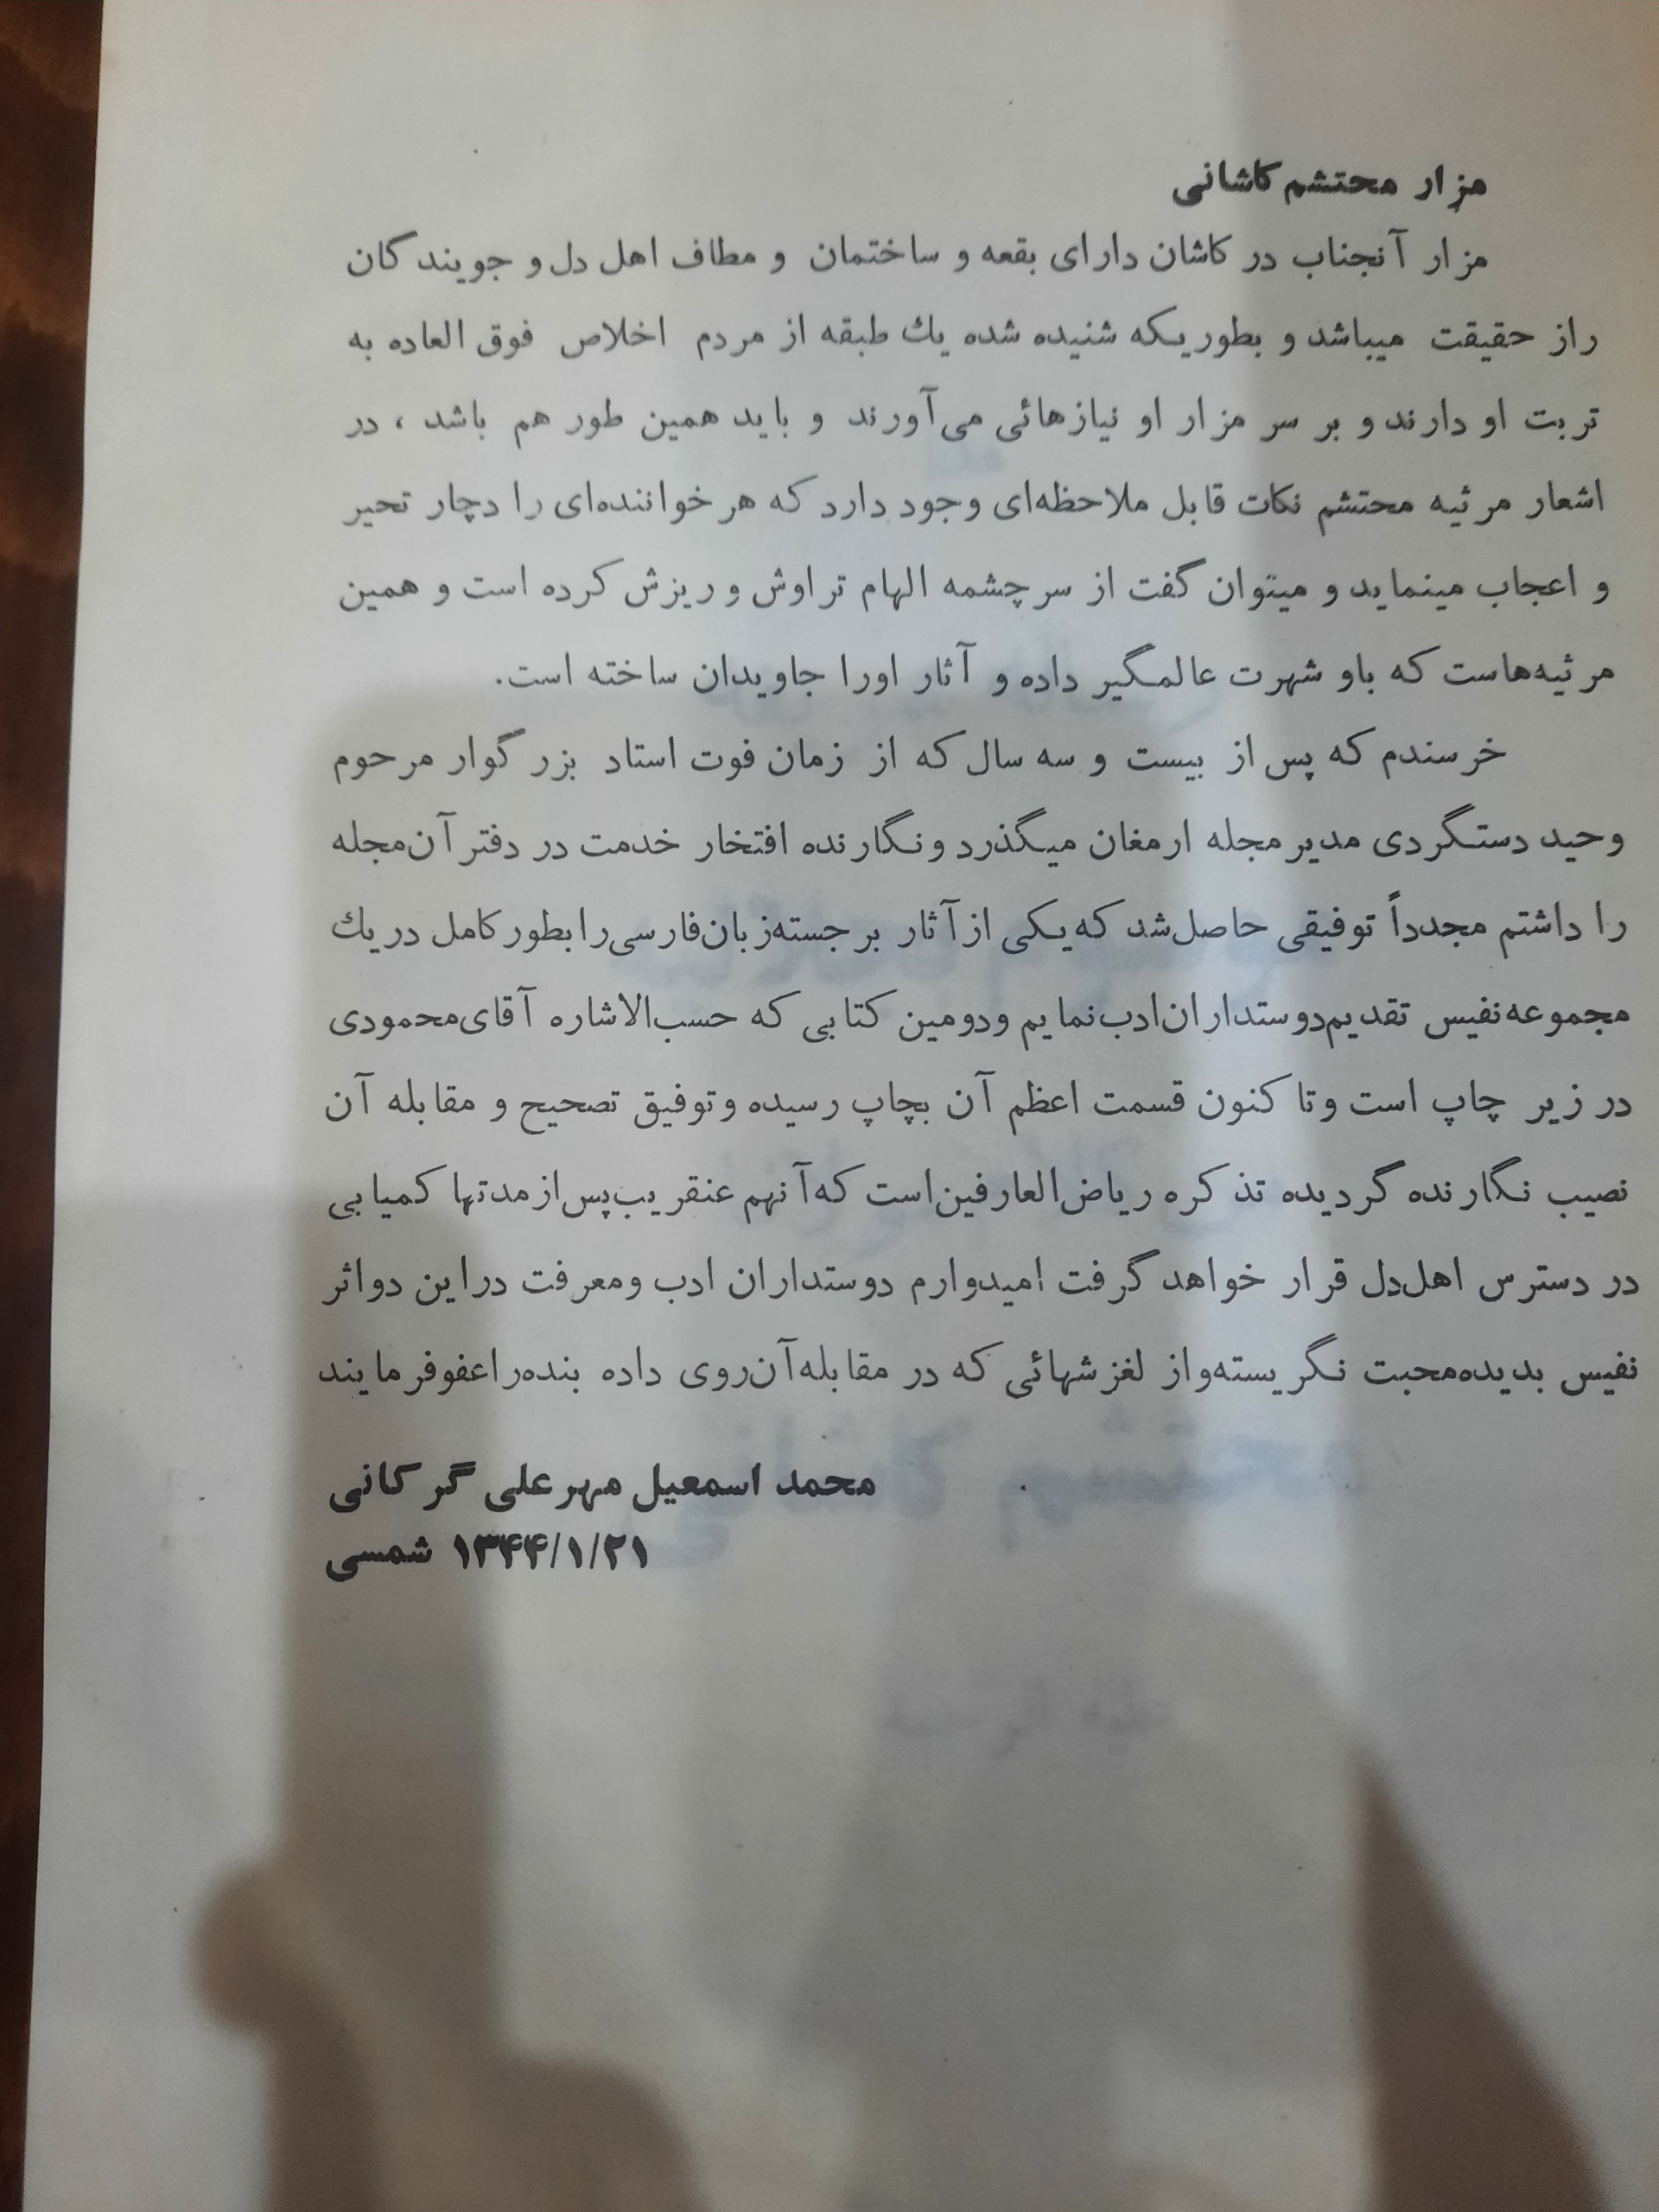 مزار محتشم کاشانی
مزار آنجناب در کاشان دارای بقعه و ساختمان و مطاف اهل دل و جویندگان
راز حقیقت میباشد و بطوریکه شنیده شده یك طبقه از مردم اخلاص فوق العاده به
تربت او دارند و بر سر مزار او نیازهائی می‌آورند و باید همین طور هم باشد ، در
اشعار مرثیه محتشم نکات قابل ملاحظه‌ای وجود دارد که هر خواننده‌ای را دچار تحیر
و اعجاب مینماید و میتوان گفت از سرچشمه الهام تراوش و ریزش کرده است و همین
مرثیه‌هاست که باو شهرت عالمگیر داده و آثار اورا جاویدان ساخته است.
خرسندم که پس از بیست و سه سال که از زمان فوت استاد بزرگوار مرحوم
وحید دستگردی مدیر مجله ارمغان میگذرد و نگارنده افتخار خدمت در دفتر آن مجله
را داشتم مجدداً توفیقی حاصل شد که یکی از آثار برجسته زبان فارسی را بطور کامل در یك
مجموعه نفیس تقدیم دوستداران ادب نمایم و دومین کتابی که حسب الاشاره آقای محمودی
در زیر چاپ است و تا کنون قسمت اعظم آن بچاپ رسیده و توفیق تصحیح و مقابله آن
نصیب نگارنده گردیده تذکره ریاض العارفین است که آنهم عنقریب پس از مدتها کمیابی
در دسترس اهل دل قرار خواهد گرفت امیدوارم دوستداران ادب و معرفت در این دو اثر
نفیس بدیده محبت نگریسته و از لغزشهائی که در مقابله آن روی داده بنده را عفو فرمایند
محمد اسمعیل مهرعلی گرکانی
۱۳۴۴/۱/۲۱ شمسی